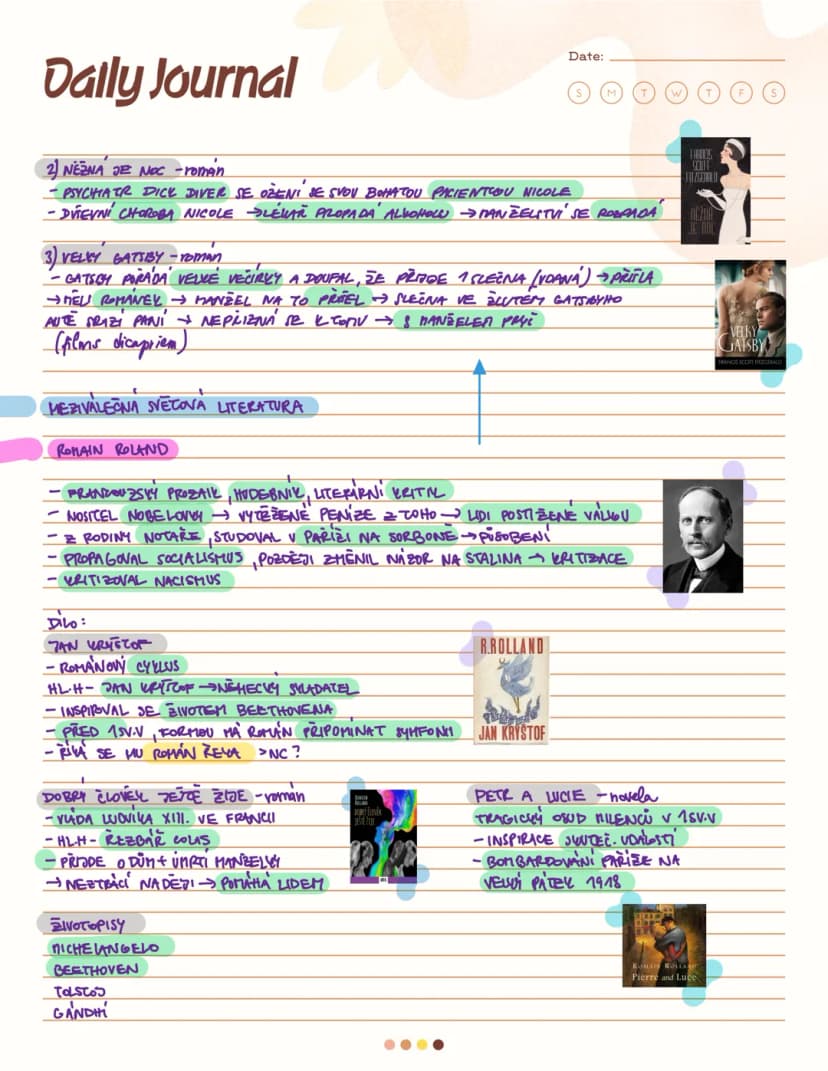 Daily Journal
Date:
S M T W T F S
2) NĚŽNÁ JE NOC - román
- PSYCHIATR DICK DIVER SE OŽENÍ SE SVOU BOHATOU PACIENTKOU NICOLE
- DUŠEVNÍ CHOROBA NICOLE → LÉKAŘ PROPADÁ ALKOHOLU → MANŽELSTVÍ SE ROZPADÁ
FRANCIS
SCOTT
FITZGERALD
NĚŽNÁ
JE NOC
3) VELKÝ GATSBY - román
- GATSBY POŘÁDÁ VELKÉ VEČÍRKY A DOUFAL, ŽE PŘIJDE 1 SLEČNA (VDANÁ) → PŘIŠLA
→ MĚLI ROMÁNEK → MANŽEL NA TO PŘIŠEL → SLEČNA VE ŽLUTÉM GATSBYHO
AUTĚ SRAZÍ PANÍ → NEPŘIZNÁ SE K TOMU → S MANŽELEM PRYČ
(film s dicapriem)
VELKÝ
GATSBY
FRANCIS SCOTT FITZGERALD
MEZIVÁLEČNÁ SVĚTOVÁ LITERATURA
ROMAIN ROLAND
- FRANCOUZSKÝ PROZAIK, HUDEBNÍK, LITERÁRNÍ KRITIK
- NOSITEL NOBELOVKY → VYTĚŽENÉ PENÍZE Z TOHO → LIDI POSTIŽENÉ VÁLKOU
- Z RODINY NOTÁŘE, STUDOVAL V PAŘÍŽI NA SORBONĚ → PŮSOBENÍ
- PROPAGOVAL SOCIALISMUS, POZDĚJI ZMĚNIL NÁZOR NA STALINA → KRITIZACE
- KRITIZOVAL NACISMUS
DÍLO:
JAN KRYŠTOF
- ROMÁNOVÝ CYKLUS
HL.H - JAN KRYŠTOF → NĚMECKÝ SKLADATEL
- INSPIROVAL SE ŽIVOTEM BEETHOVENA
- PŘED 1SV.V, FORMOU MÁ ROMÁN PŘIPOMÍNAT SYMFONII
- ŘÍKÁ SE MU ROMÁN ŘEKA > NC?
R.ROLLAND
JAN KRYŠTOF
DOBRÝ ČLOVĚK JEŠTĚ ŽIJE - román
- VLÁDA LUDVÍKA XIII. VE FRANCII
- HL.H - ŘEZBÁŘ COLAS
- PŘIJDE O DŮM + ÚMRTÍ MANŽELKY
→ NEZTRÁCÍ NADĚJI → POMÁHÁ LIDEM
PETR A LUCIE - novela
TRAGICKÝ OSUD MILENCŮ V 1SV.V
- INSPIRACE SKUTEČ. UDÁLOSTÍ
- BOMBARDOVÁNÍ PAŘÍŽE NA
VELKÝ PÁTEK 1918
ROMAIN ROLLAND
Pierre and Luce
ŽIVOTOPISY
MICHELANGELO
BEETHOVEN
TOLSTOJ
GÁNDHÍ